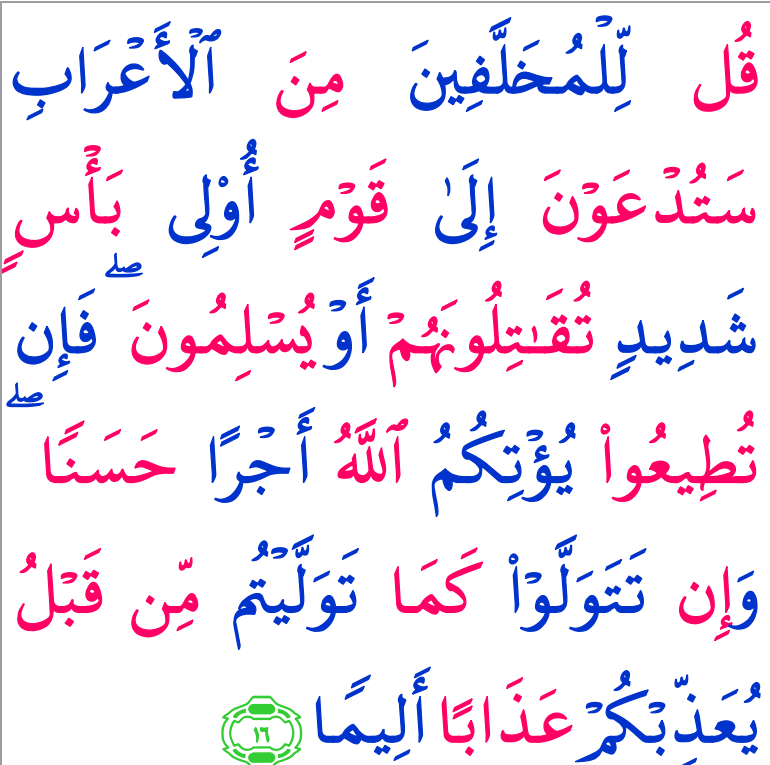 قُل لِّلْمُخَلَّفِينَ مِنَ ٱلْأَعْرَابِ
سَتُدْعَوْنَ إِلَىٰ قَوْمٍ أُوْلِى بَأْسٍ
شَدِيدٍ تُقَـٰتِلُونَهُمْ أَوْ يُسْلِمُونَ ۖ فَإِن
تُطِيعُوا۟ يُؤْتِكُمُ ٱللَّهُ أَجْرًا حَسَنًا ۖ
وَإِن تَتَوَلَّوْا۟ كَمَا تَوَلَّيْتُم مِّن قَبْلُ
يُعَذِّبْكُمْ عَذَابًا أَلِيمًا ١٦